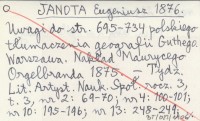 JANOTA Eugeniusz 1876.
Uwagi do str. 695-734 polskiego
tłumaczenia geografii Guthego.
Warszawa. Nakład Maurycego
Orgelbranda 1875. — Tydź.
Lit. Artyst. Nauk. Społ. rocz. 3,
t. 3, nr 2: 69-70; nr 4: 100-101;
nr 10: 195-196; nr 13: 248-249.